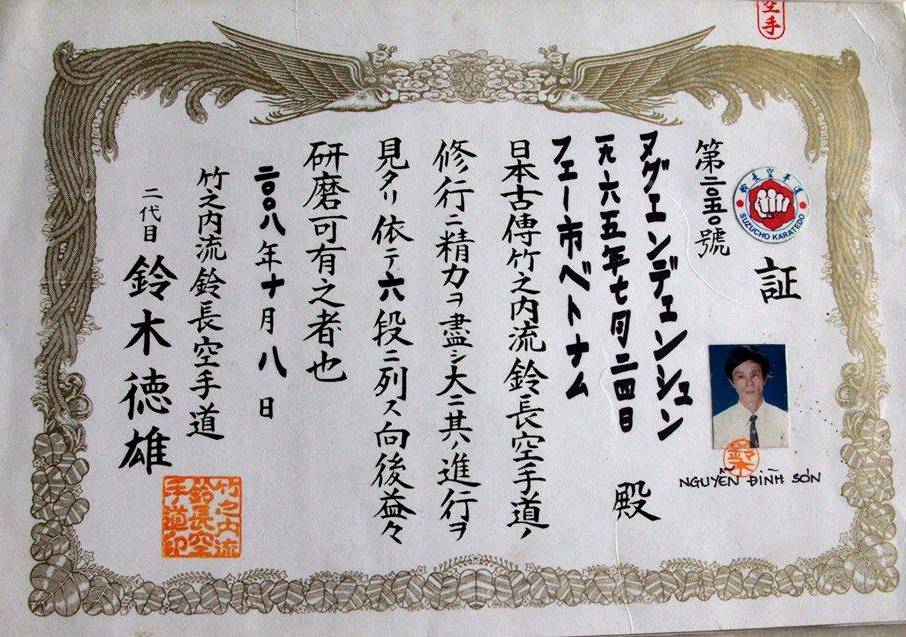 空手
鈴長空手道
SUZUCHO KARATEDO
証
鈴木
NGUYỄN ĐÌNH SƠN
第二〇五〇號
ヌグエンデェンシュン
一九六五年七月二四日 殿
フエー市ベトナム
日本古傳竹之内流鈴長空手道ノ
修行ニ精力ヲ盡シ大ニ其ノ進行ヲ
見タリ依テ六段ニ列ス向後益々
研磨可有之者也
二〇〇八年十月八日
竹之内流鈴長空手道
二代目 鈴木徳雄
竹之内流
鈴長空
手道印